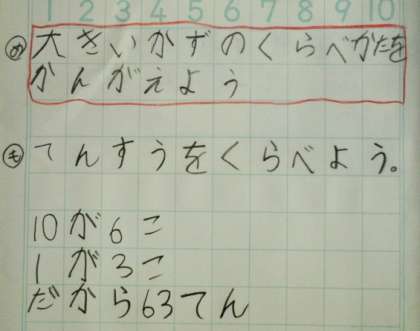 1 2 3 4 5 6 7 8 9 10
め 大きいかずのくらべかたを
かんがえよう
も てんすうをくらべよう。
10が6こ
1が3こ
だから63てん